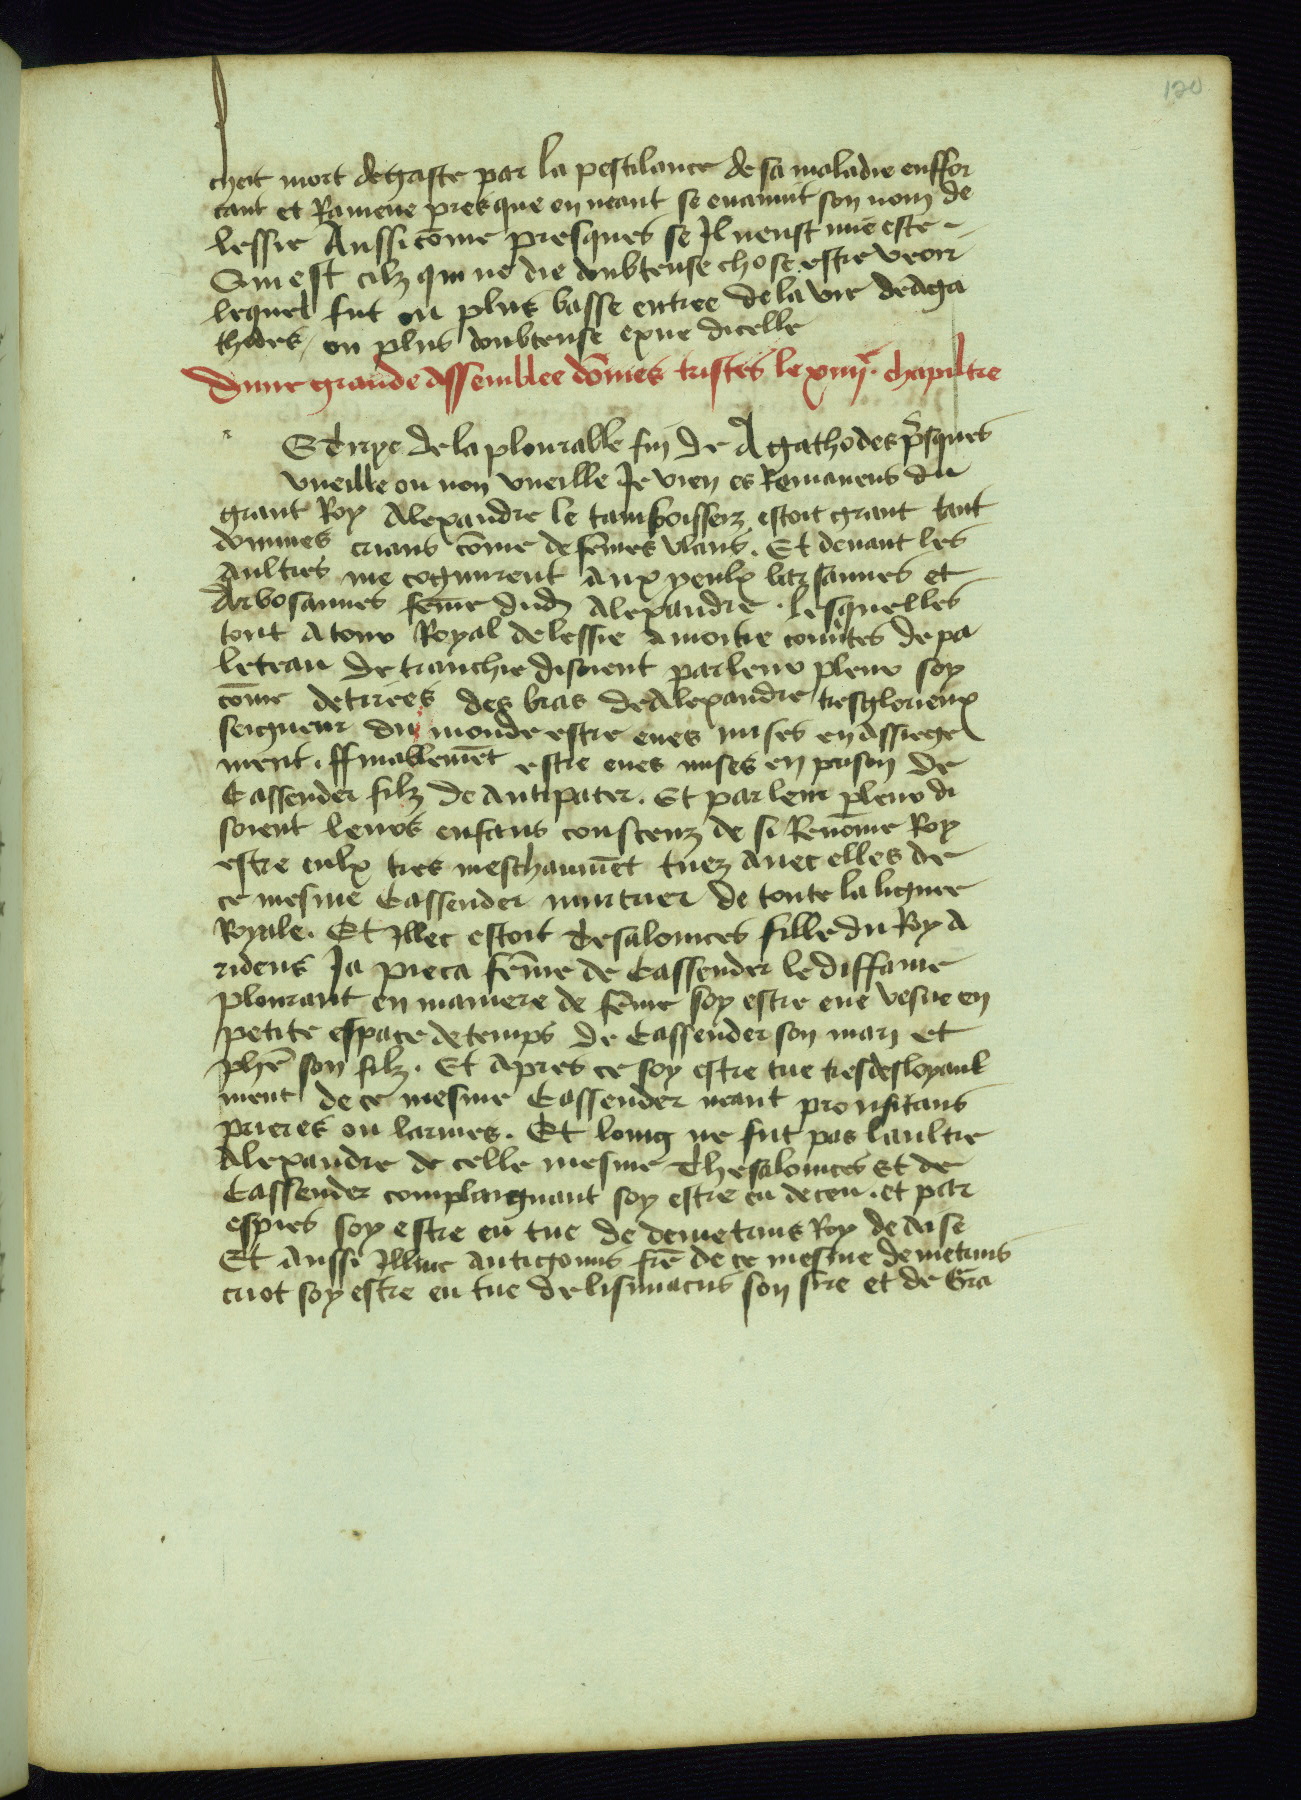 120
cheit mort degaste par la pestilance de sa maladie enffor
cant et Ramene presque en neant se evanuit son nom de
lessie Aussi cōme presques se Il neust mīe este
Qui est cilz qui ne die doubteuse chose estre veoir
lequel fut ou plus basse entree de la vie dedaga
thodes ou plus doubteuse exue dicelle
Dune grande assemblee dōmes tristes le xiiij.e chapiltre
De la plourable fin de Agathodes p̄sques
vueille ou non vueille Je vien es Remanens du
grant Roy Alexandre le estoit grant tant
dommes crians cōme de fēmes vlans. Et devant les
Aultres me cognurent Aux yeulx barsannes et
Arbosannes fēme dud Alexandre. Lesquelles
tout Atour Royal delessie Amoitie couvtes de pa
leteau de tranchie disoient par leur pleur soy
cōme detirees des bras de Alexandre tresglorieux
seigneur du monde estre eues mises en Assiege
ment. ffinablemēt estre eues mises en prison de
Cassender filz de Antipater. Et par leur pleur di
soient leurs enfans conscenz de si Renōme Roy
estre eulx tres meschammēt tuez Avec elles de
ce mesme Cassender murtrier de toute la lignee
Royale. Et Illec estoit Tesalonices fille du Roy A
rideus Ja pieca fēme de Cassender le diffame
plourant en maniere de fēme soy estre eue vesve en
petite espace de temps de Cassender son mary et
phē son filz. Et Apres ce soy estre tue tresdesloyaul
ment de ce mesme Cassender neant proufitans
prieres ou larmes. Et loing ne fut pas laultre
Alexandre de celle mesme Thesalonices et de
Cassender complaignant soy estre eu deceu. et par
espies soy estre eu tue de demetrius Roy de Aise
Et Aussi Illuec Antigonus frē de ce mesme demetrius
criot soy estre eu tue de lisimacus son sire et de Gra